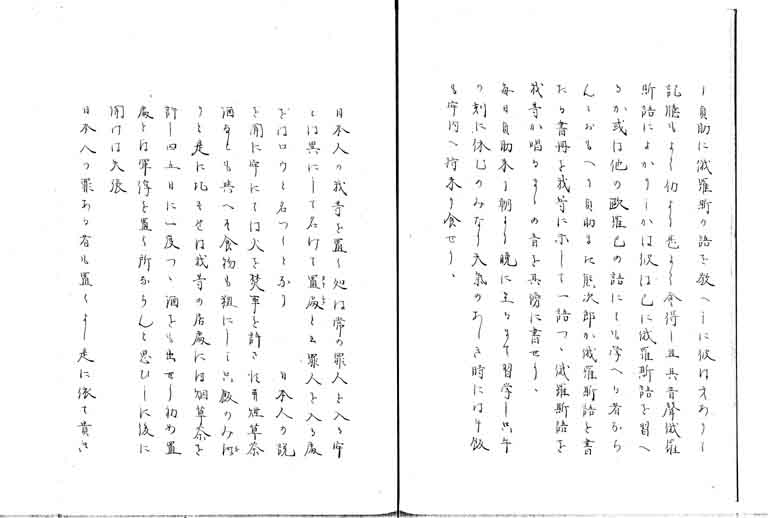 し貞助に俄羅斯の語を教へしに彼は才ありし
記憶もよく仍よく悉よく会得し且其音声俄羅
斯語によかりしかは彼は已に俄羅斯語を習へ
るか或は他の欧羅巴の語にても学へる者なら
んとおもへり貞助また熊次郎か俄羅斯語を書
たる書冊を我等に示して一語つゝ俄羅斯語を
我等か唱るまゝの音を其傍に書せり、
毎日貞助来り朝より晩に至るまて習学し只午
の刻に休むのみなり天気のあしき時には午飯
も牢内へ持来り食せり、
日本人の我等を置く処は常の罪人を入る牢
とは異にして名けて置处と云罪人を入る処
をはロウと名つくとなり 日本人の説
を聞に牢にては火を焚事を許さす煙草茶
酒なとも与へす食物も粗にして只飯のみ
りと是に比すれは我等の居处には烟草茶を
許し四五日に一度つゝ酒をも出せり初め置
处とは軍俘を置く所ならんと思ひしに後に
聞けは矢張
日本人の罪ある者も置くよし是に依て貴き